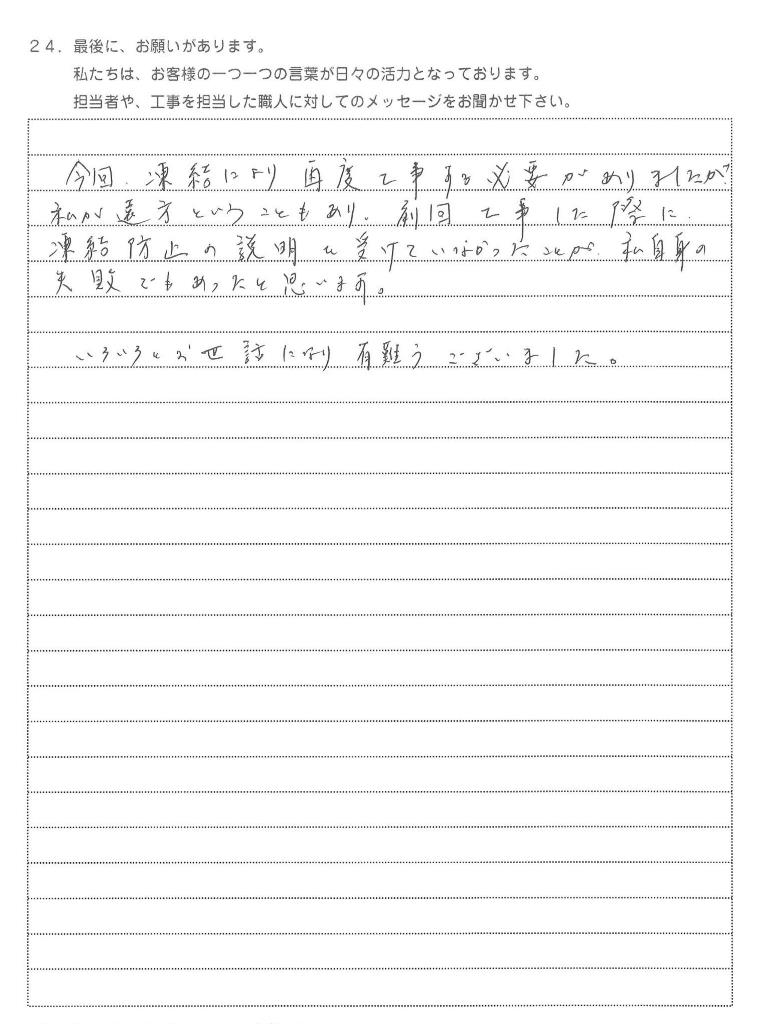 24．最後に、お願いがあります。
私たちは、お客様の一つ一つの言葉が日々の活力となっております。
担当者や、工事を担当した職人に対してのメッセージをお聞かせ下さい。
今回、凍結により再度工事する必要がありましたが、
私が遠方ということもあり。前回工事した際に、
凍結防止の説明を受けていなかったことが、私自身の
失敗でもあったと思います。
いろいろとお世話になり有難うございました。